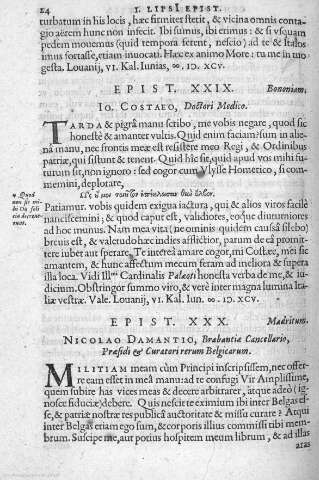 24 I. LIPSI EPIST.
turbatum in his locis, hæc firmiter stetit, & vicina omnis conta-
gio aërem hunc non infecit. Ibi sumus, ibi erimus: & si vsquam
pedem mouemus (quid tempora ferent, nescio) ad te & Italos
imus fortasse, etiam inuocati. Hæc ex animo More: tu me in iu-
gesta. Louanij, VI. Kal. Iunias, ∞. IↃ. XCV.
EPIST. XXIX. Bononiam.
IO. COSTAEO, Doctori Medico.
TARDA & pigrâ manu scribo, me vobis negare, quod sic
honestè & amanter vultis. Quid enim faciam? sum in alie-
nâ manu, nec frontis meæ est resistere meo Regi, & Ordinibus
patriæ, qui sistunt & tenent. Quid hîc sit, quid apud vos mihi fu-
turum sit, non ignoro: sed cogor cum Vlysse Homerico, si com-
memini, deplorare,
Patiamur. vobis quidem exigua iactura, qui & alios viros facilè
nanciscemini; & quod caput est, validiores, eoque diuturniores
ad hoc munus. Nam mea vita (ne ominis quidem caussâ silebo)
breuis est, & valetudo hæc indies afflictior, parum de eâ promit-
tere iubet aut sperare. Te interea amare cogor, mi Costæe, mei sic
amantem, & hunc affectum mecum feram ad meliora & supera
illa loca. Vidi Illmi Cardinalis Palæoti honesta verba de me, & iu-
dicium. Obstringor summo viro, & verè inter magna lumina Ita-
liæ vestræ. Vale. Louanij, VI. Kal. Iun. ∞. IↃ. XCV.
EPIST. XXX. Madritum.
NICOLAO DAMANTIO, Brabantiæ Cancellario,
Præsidi & Curatori rerum Belgicarum.
MILITIAM meam cùm Principi inscripsissem, nec offer-
re eam esset in meâ manu: ad te confugi Vir Amplissime,
quem subire has vices meas & decere arbitrarer, atque adeò (ig-
nosce fiduciæ) debere. Quis nescit te eximium ibi inter Belgas es-
se, & patriæ nostræ res publicâ auctoritate & missu curare? Atqui
inter Belgas etiam ego sum, & corporis illius commissi tibi mem-
brum. Suscipe me, aut potius hospitem meum librum, & ad illas
aras